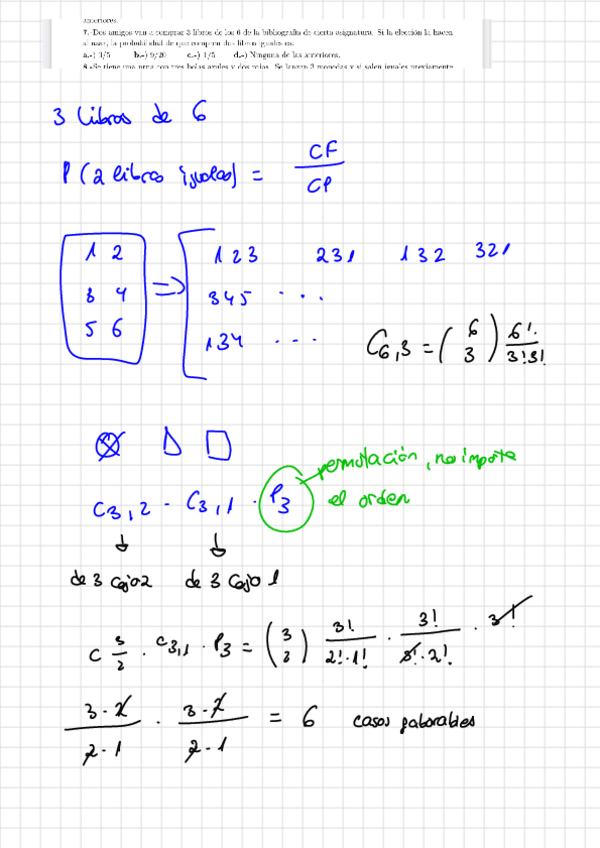 anteriores.
7.-Dos amigos van a comprar 3 libros de los 6 de la bibliografía de cierta asignatura. Si la elección la hacen
al azar, la probabilidad de que compren dos libros iguales es:
a.-) 3/5 b.-) 9/20 c.-) 1/5 d.-) Ninguna de las anteriores.
8.-Se tiene una urna con tres bolas azules y dos rojas. Se lanzan 2 monedas y si salen iguales previamente
3 libros de 6
P (2 libros iguales) = CF / CP
1 2 ⇒ 1 2 3 2 3 1 1 3 2 3 2 1
3 4 3 4 5 ...
5 6 1 3 4 ...
C6,3 = (6 3) 6! / 3!3!
permutación, no importa
el orden
C3,2 · C3,1 · P3
de 3 cojo 2 de 3 cojo 1
C 3/2 · C3,1 · P3 = (3 2) 3! / 2!·1! · 3! / 1!·2! · 3!
3·2 / 2·1 · 3·2 / 2·1 = 6 casos faborables